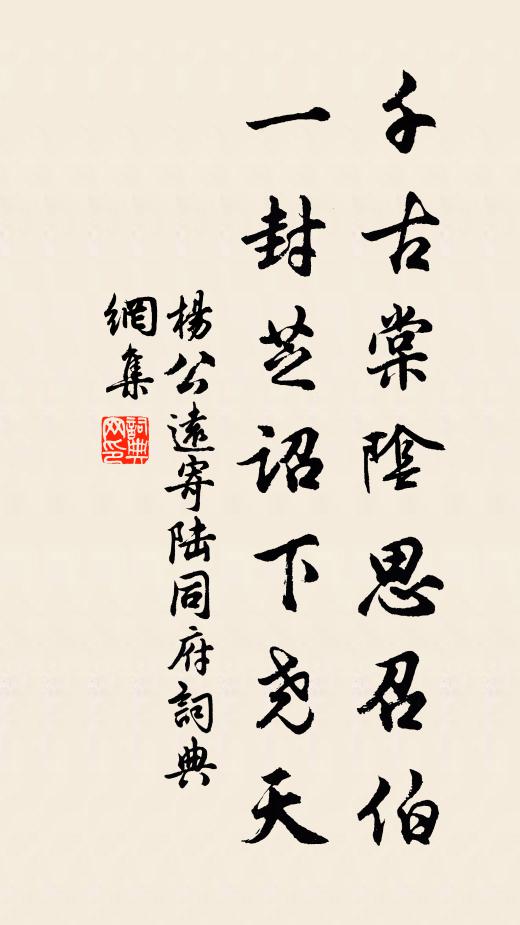 千古棠陰思召伯
一封芝詔下尧天
楊公遠寄陆同府詞典
網集
詞典
网印